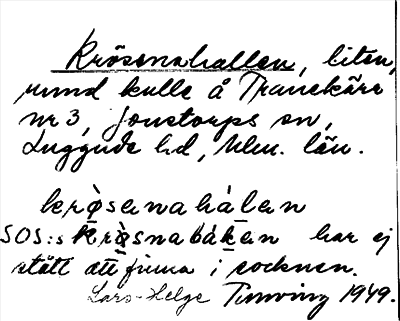 Krösenahallen, liten,
rund kulle å Tranekäre
nr 3, Jonstorps sn,
Luggude hd, Mlm. län.
krø̀sanahálan
SOS:s Krø̀snabákan har ej
stått att finna i socknen.
Lars-Helge 1949.